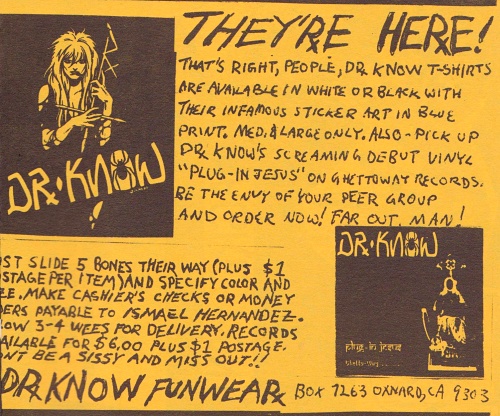 THEY'RE HERE!
THAT'S RIGHT, PEOPLE, DR. KNOW T-SHIRTS
ARE AVAILABLE IN WHITE OR BLACK WITH
THEIR INFAMOUS STICKER ART IN BLUE
PRINT, MED, & LARGE ONLY. ALSO - PICK UP
DR. KNOW'S SCREAMING DEBUT VINYL
"PLUG-IN JESUS" ON GHETTOWAY RECORDS.
BE THE ENVY OF YOUR PEER GROUP
AND ORDER NOW! FAR OUT, MAN!
DR·KNOW
DR·KNOW
plug-in jesus
ST SLIDE 5 BONES THEIR WAY (PLUS $1
STAGE PER ITEM) AND SPECIFY COLOR AND
ZE. MAKE CASHIER'S CHECKS OR MONEY
DERS PAYABLE TO ISMAEL HERNANDEZ.
OW 3-4 WEES FOR DELIVERY. RECORDS
AILABLE FOR $6.00 PLUS $1 POSTAGE.
ON'T BE A SISSY AND MISS OUT!!
DR. KNOW FUNWEAR BOX 7263 OXNARD, CA 9303